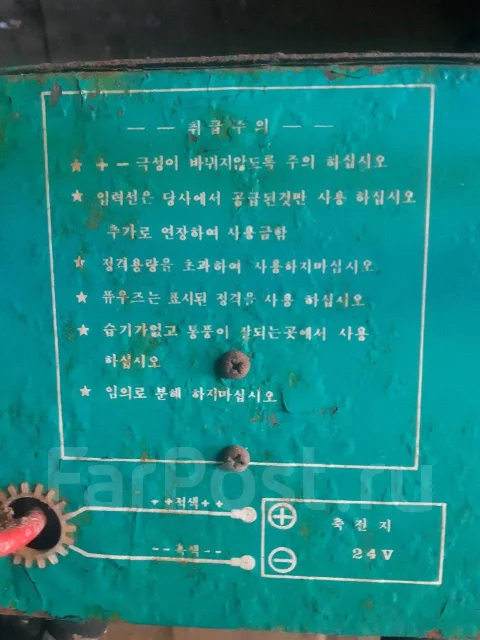 — — 취급주의 — —
★ + − 극성이 바뀌지않도록 주의 하십시오
★ 입력선은 당사에서 공급된것만 사용 하십시오
추가로 연장하여 사용금함
★ 정격용량을 초과하여 사용하지마십시오
★ 퓨우즈는 표시된 정격을 사용 하십시오
★ 습기가없고 통풍이 잘되는곳에서 사용
하십시오
★ 임의로 분해 하지마십시오
FarPost.ru
++적색++
⊕ 축전지
--흑색--
⊖ 24V